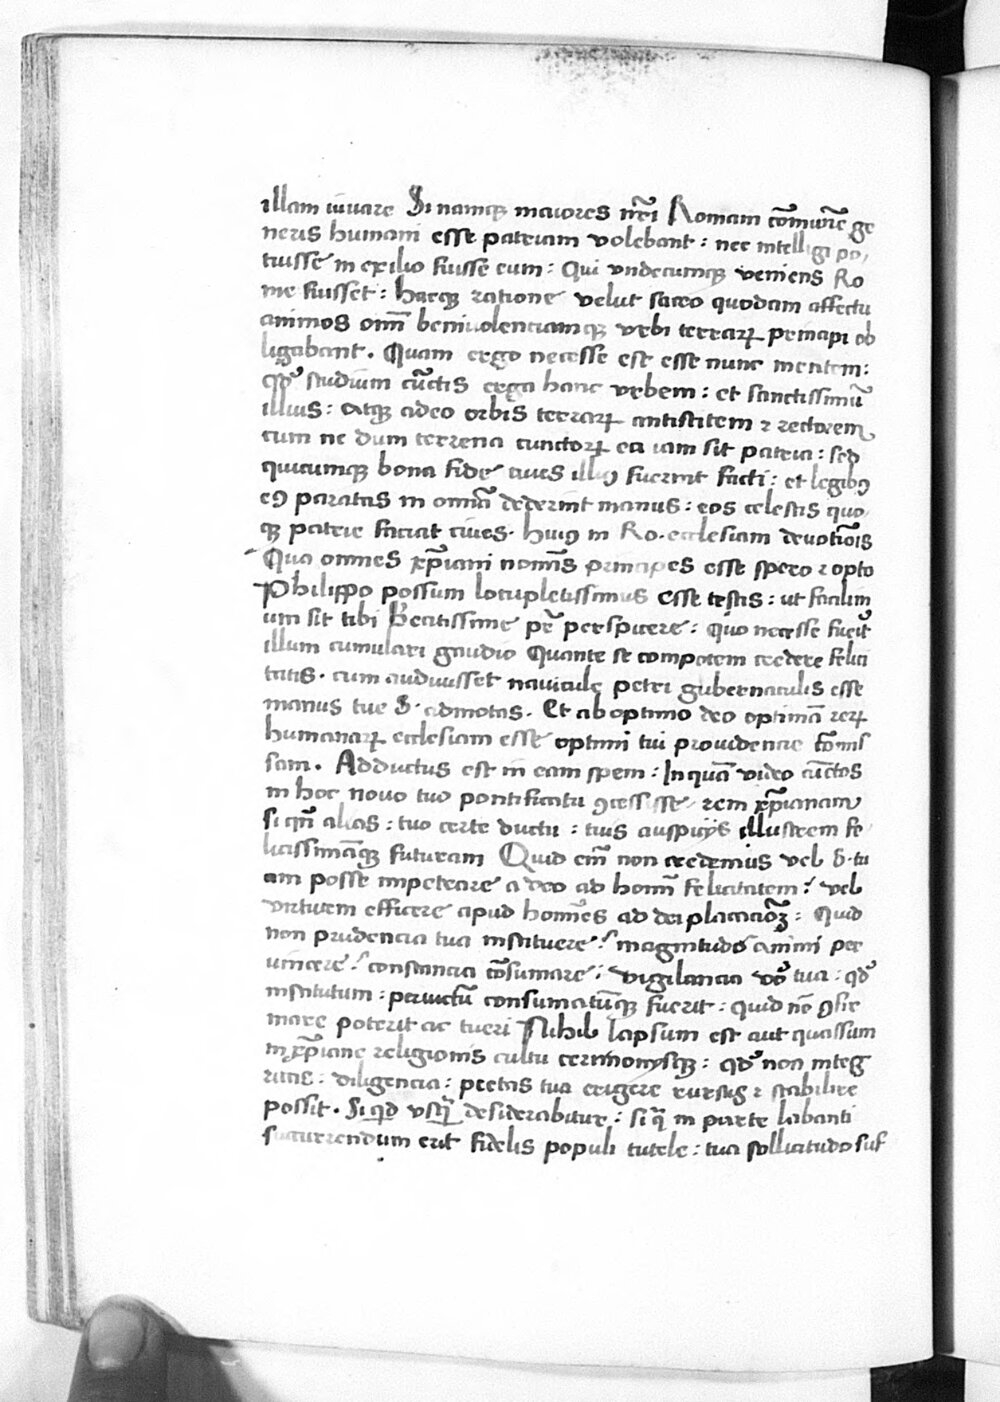 illam iuvare Si namqꝫ maiores nr̄i Romam cōmunē ge
neris humani esse patriam volebant : nec intelligi po,
tuisse in exilio fuisse eum : Qui undecumqꝫ veniens Ro
me fuisset : hacqꝫ ratione velut sacro quodam affectu
animos om̄ benivolentiamqꝫ urbi terrarꝝ principi ob
ligabant . Quam ergo necesse est esse nunc mentem :
studium cūctis erga hanc urbem : et sanctissimū
illius : atqꝫ adeo orbis terrarꝝ antistitem ⁊ rectorem
cum ne dum terrena cunctorꝝ ea iam sit patria : sed
quicumqꝫ bona fide cives illiꝰ fuerint facti : et legibꝰ
eiꝰ paratas in omnia dederint manus : eos celestis quo,
qꝫ patrie faciat cives . huiꝰ in Ro . ecclesiam devotiōis
Quo omnes xp̄iani nomīs principes esse spero ⁊ opto
Philippo possum locupletissimus esse testis : ut facilim
um sit tibi Beatissime pr̄ perspicere : quo necesse fuerit
illum cumulari gaudio Quante se compotem credere felici
tatis . cum audivisset navicule petri gubernaculis esse
manus tue S . admotas . Et ab optimo deo optimā rerꝝ
humanarꝝ ecclesiam esse optimi tui providencie cōmis
sam . Adductus est in eam spem : In quā video cūctos
in hoc novo tuo pontificatu ꝯcessisse rem xp̄ianam
si qn̄ alias : tuo certe ductu : tuis auspicijs illustrem fe
licissimāqꝫ futuram Quid em̄ non credemus vel S . tu
am posse impetrare a deo ad homīn felicitatem ? vel
virtutem efficere apud homīes ad dei placaciōꝫ : Quid
non prudencia tua instituere ? magnitudo animi per
vincere ? constancia cōsumare ? vigilancia vō tua : qd̛
institutum : pervictū consumatūqꝫ fuerit : quid nō ꝯfir
mare poterit ac tueri Nihil lapsum est aut quassum
in xp̄iane religionis cultu cerimonijsqꝫ : qd̛ non integ
ritas : diligencia : pietas tua erigere rursus ⁊ stabilire
possit . Si qd usq̄ desiderabitur : si q̄ in parte labanti
succurrendum erit fidelis populi tutele : tua sollicitudo suf